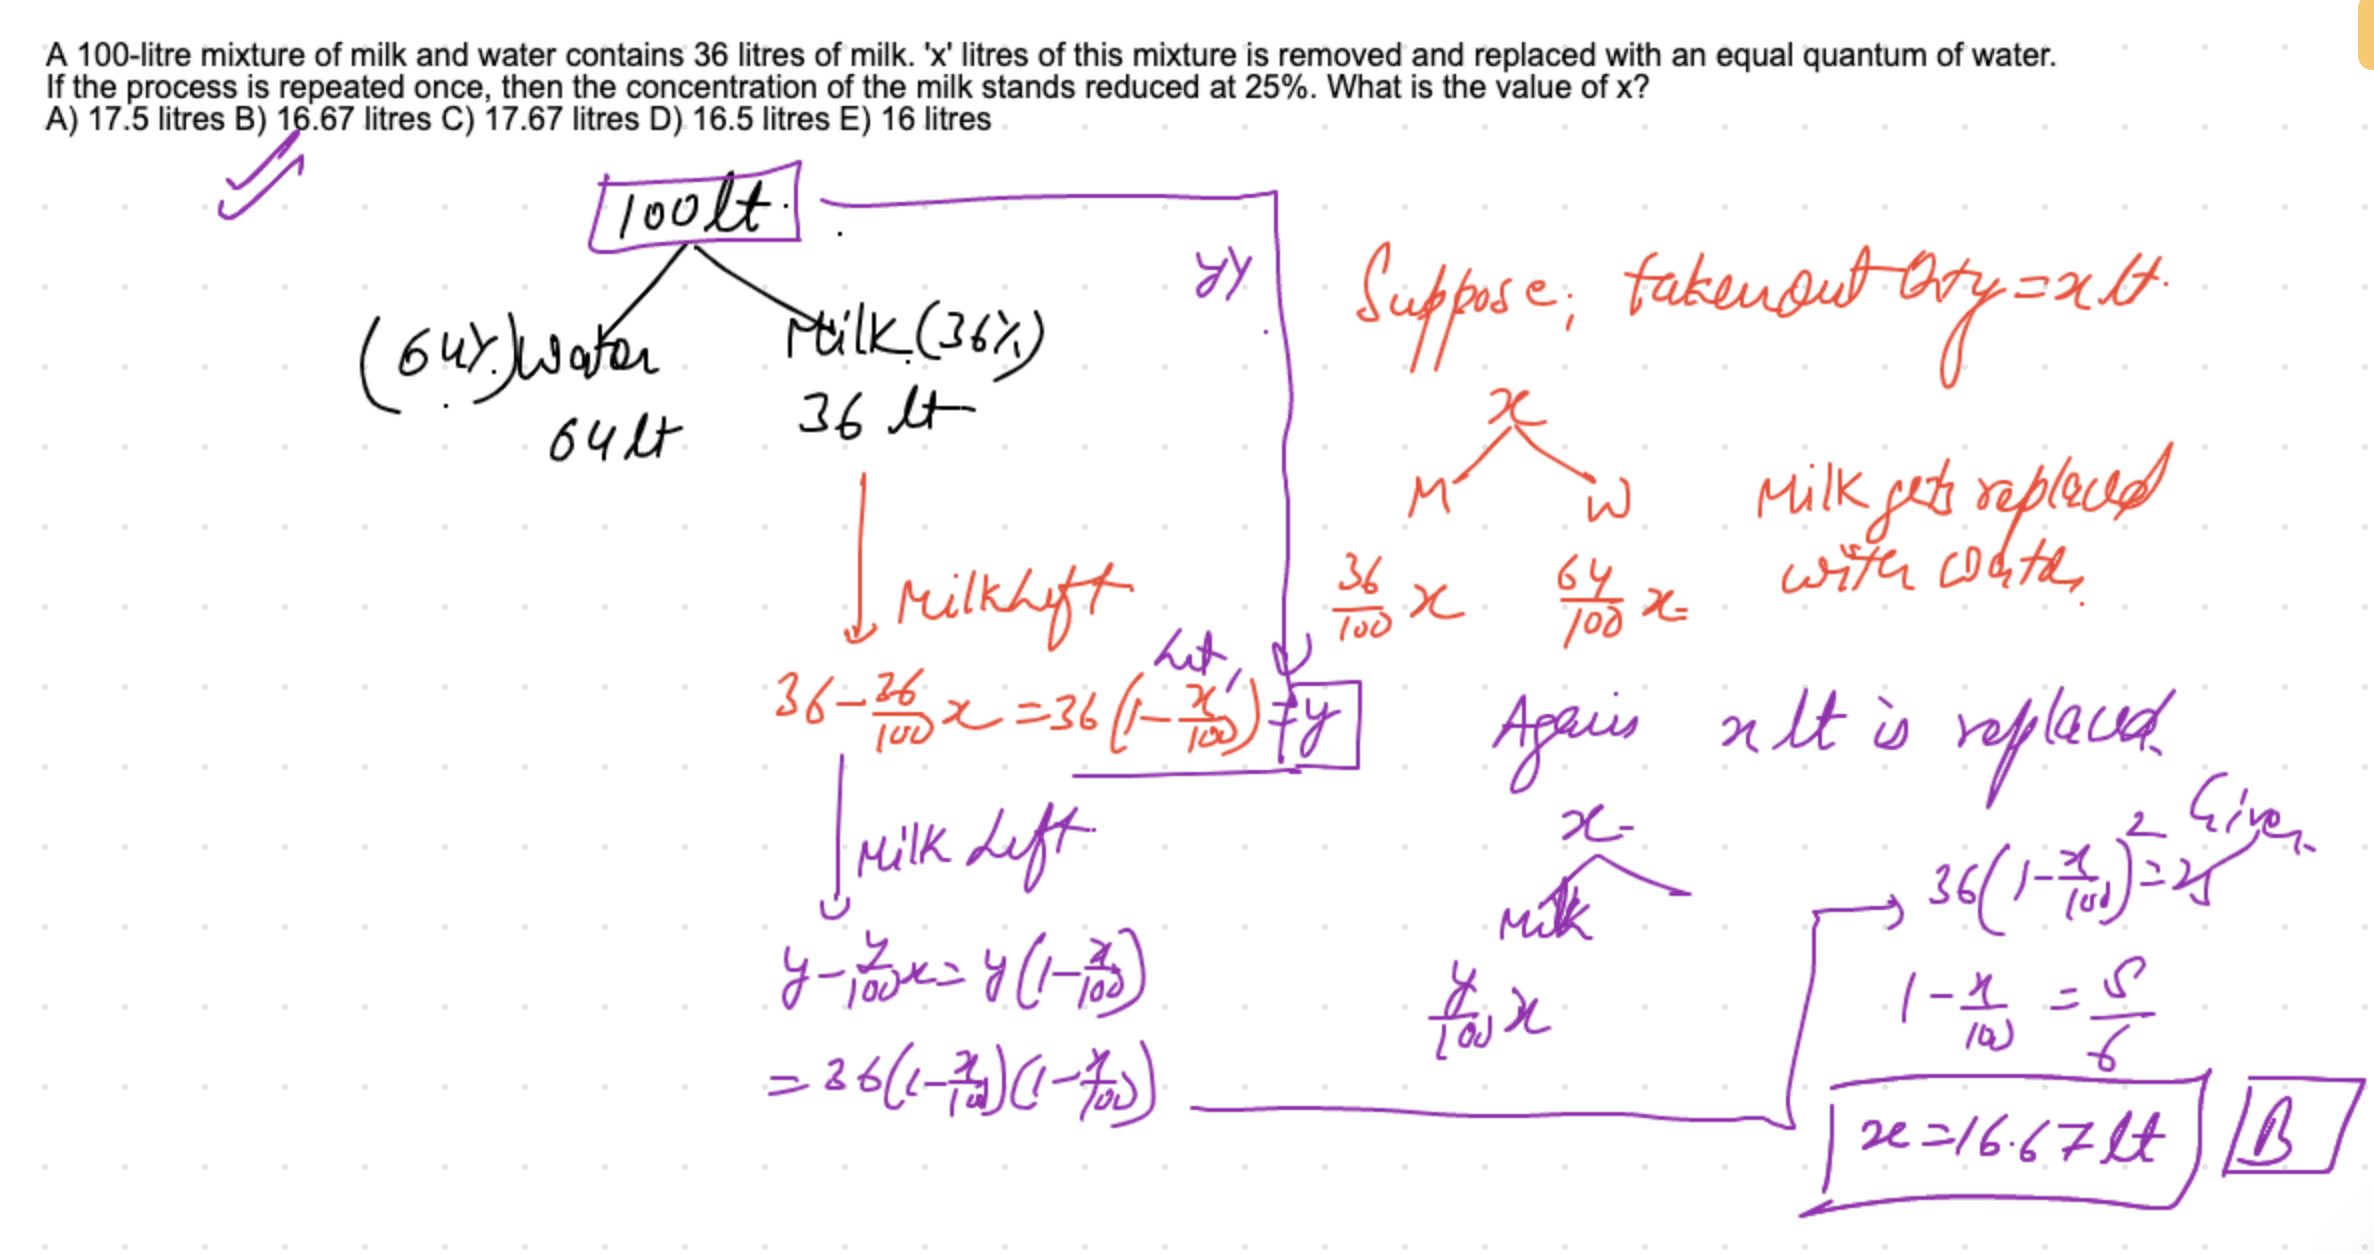 A 100-litre mixture of milk and water contains 36 litres of milk. 'x' litres of this mixture is removed and replaced with an equal quantum of water.
If the process is repeated once, then the concentration of the milk stands reduced at 25%. What is the value of x?
A) 17.5 litres B) 16.67 litres C) 17.67 litres D) 16.5 litres E) 16 litres
100lt.
(64%) Water
64lt
Milk (36%)
36 lt
y%
Suppose, takenout Qty = x lt.
x
M W
36/100 x 64/100 x
Milk gets replaced
with water
Milk Left
36 - 36/100 x = 36 (1 - x/100) = y
Let,
Again x lt is replaced
x
Milk
y/100 x
Milk Left
y - y/100 x = y (1 - x/100)
= 36 (1 - x/100) (1 - x/100)
Given
36 (1 - x/100)² = 25
1 - x/100 = 5/6
x = 16.67 lt
B